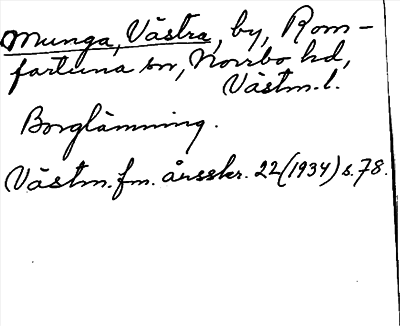 Munga, Västra, by, Rom-
fartuna sn, Norrbo hd,
Västm. l.
Borglämning.
Västm. fm. årsskr. 22 (1934) s. 78.